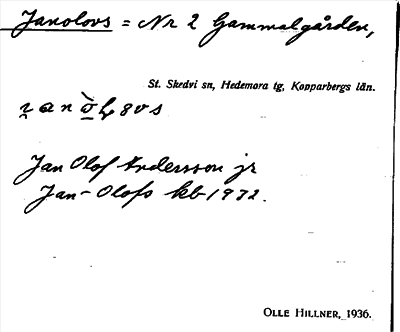 Janolovs = Nr 2 Gammalgården,
St. Skedvi sn, Hedemora tg, Kopparbergs län.
Jan Olof Andersson jr
Jan-Olofs kb 1972.
OLLE HILLNER, 1936.